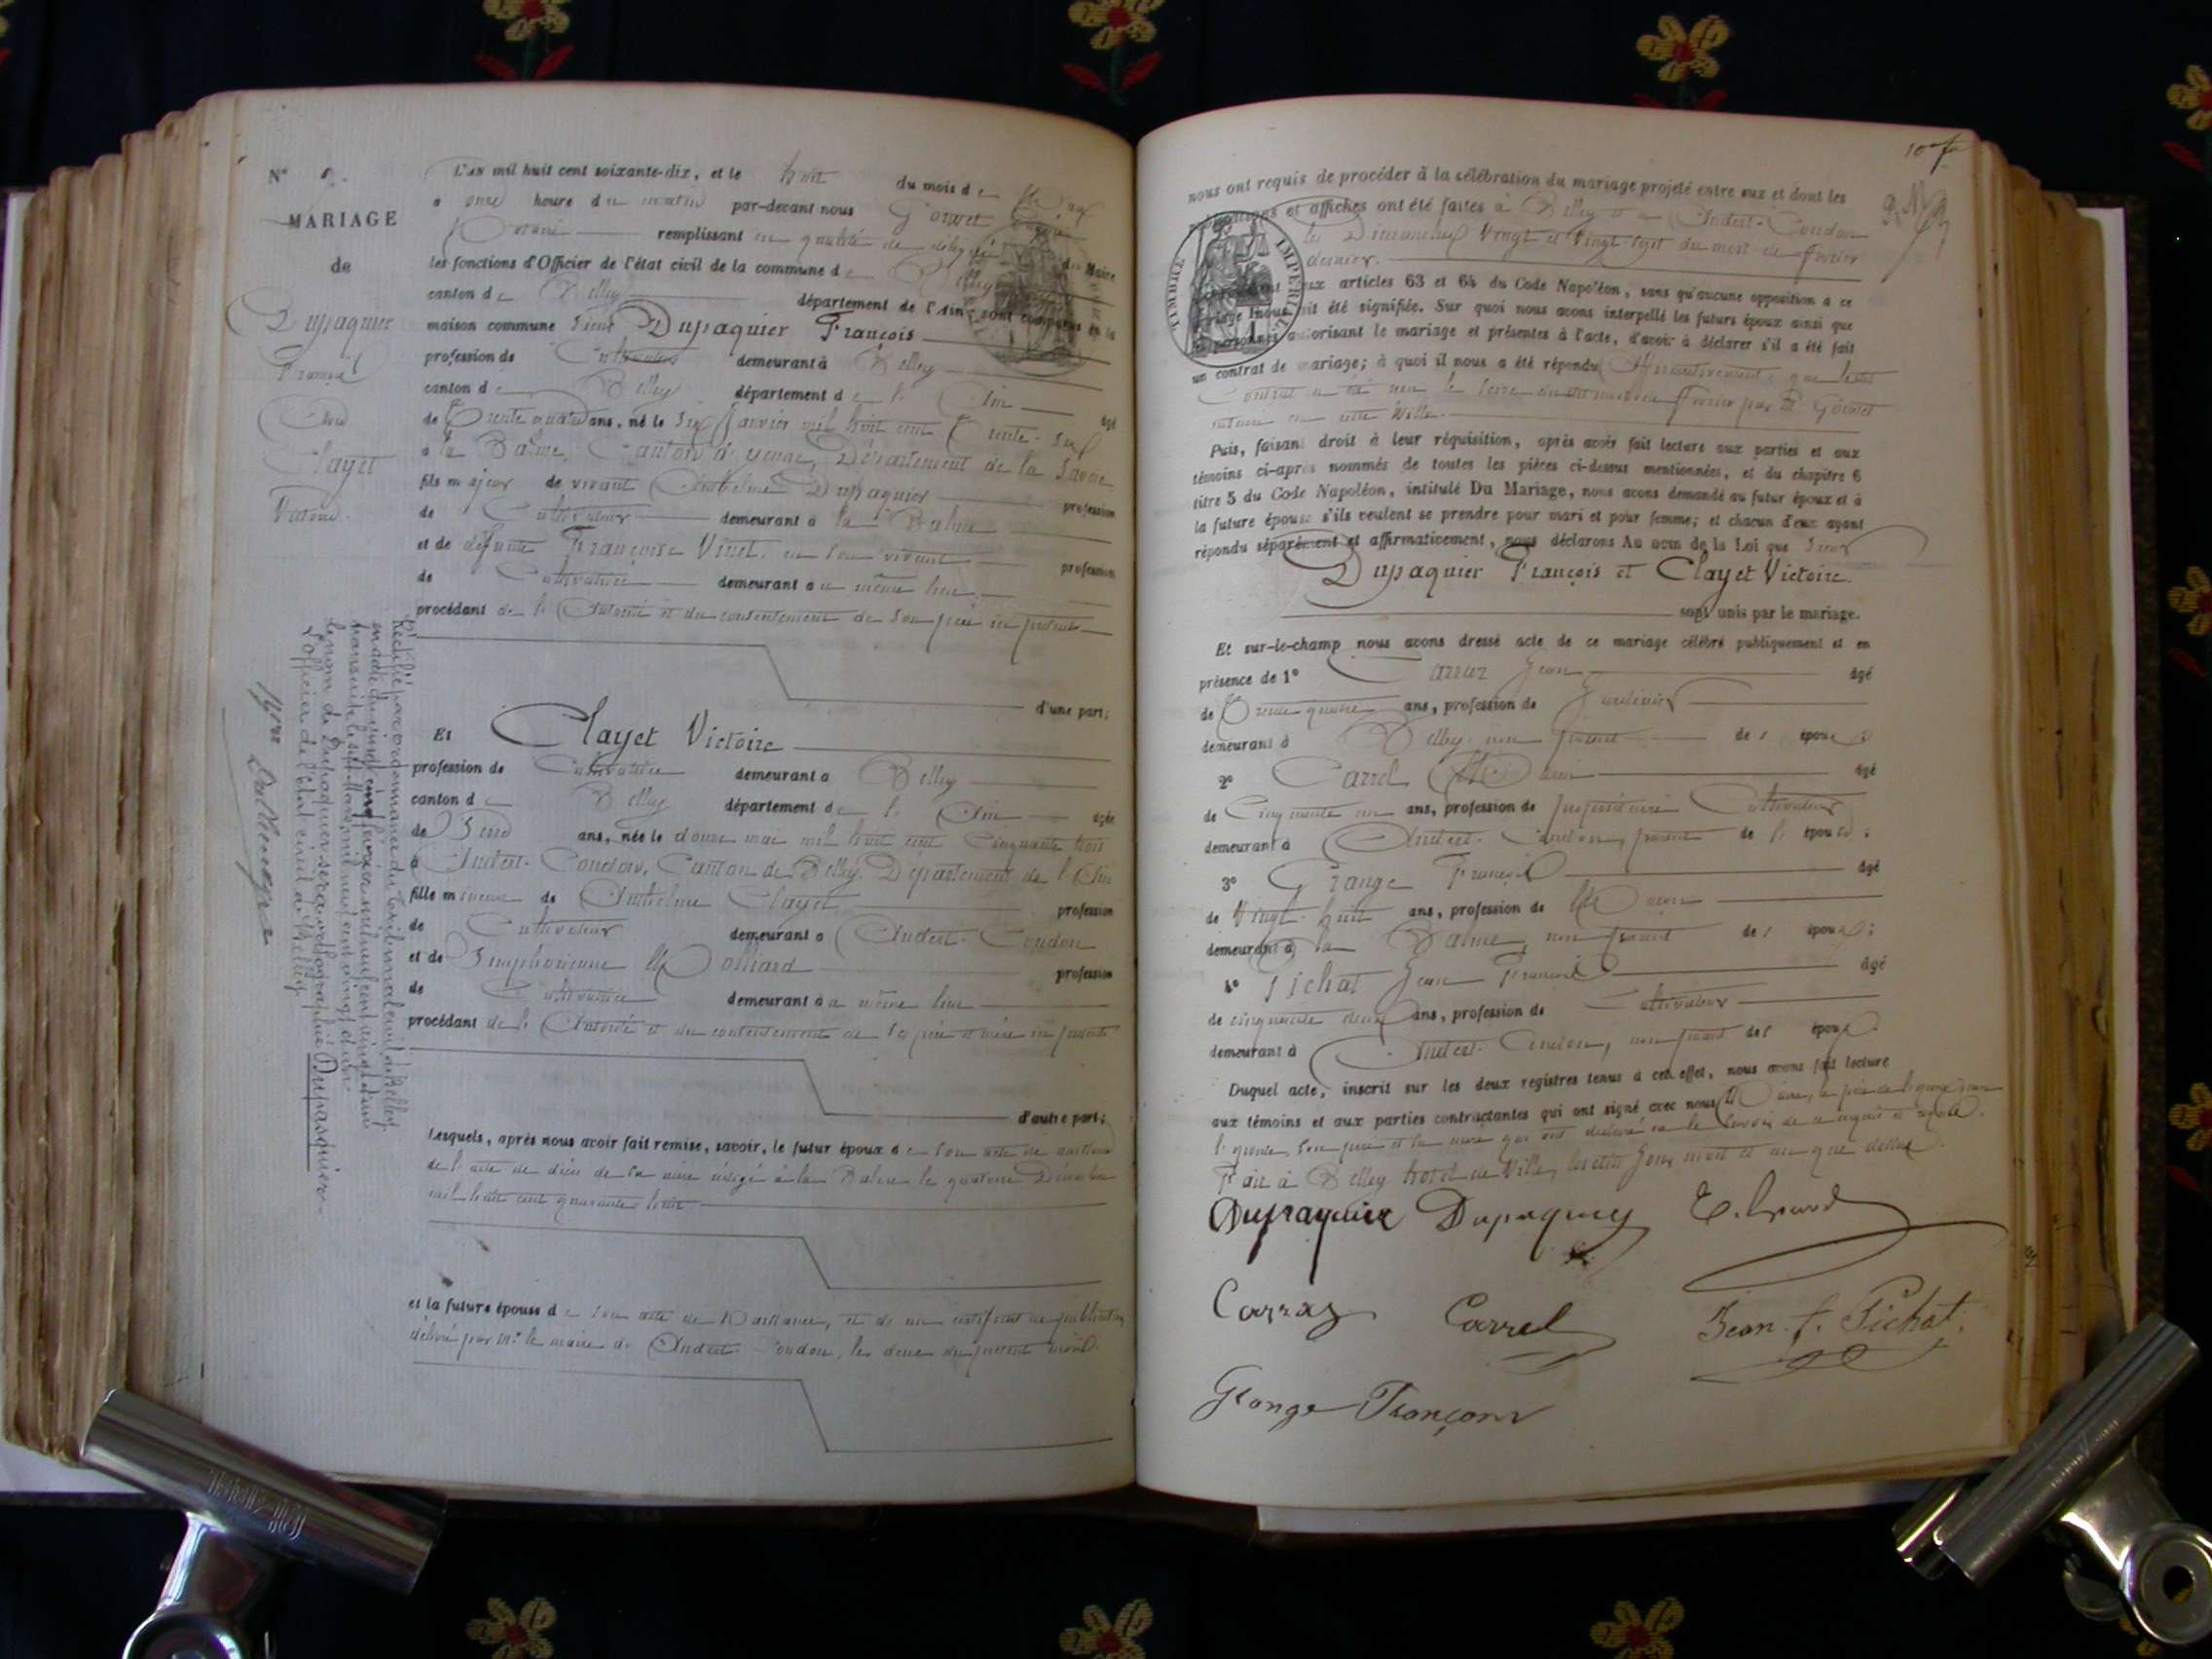 N°
MARIAGE
de
Dupaquier
François
Avec
Clayet
Victoire.
L'AN mil huit cent soixante-dix, et le huit du mois de
à onze heure du matin par-devant nous Gonvet
Notaire remplissant en qualité de délégué du Maire
les fonctions d'Officier de l'état civil de la commune de Belley
canton de Belley département de l'Ain, sont comparus en la
maison commune Sieur Dupaquier François
profession de Cultivateur demeurant à Belley
canton de Belley département de l' Ain âgé
de Trente quatre ans, né le six Janvier mil huit cent Trente-six
à la Balme, Canton de Yenne, Département de la Savoie
fils majeur de vivant Anthelme Dupaquier profession
de Cultivateur demeurant à la Balme
et de défunte Françoise Vinet en son vivant profession
de Cultivatrice demeurant au même lieu.
procédant de l'Autorité et du consentement de son père ici présent
d'une part;
Et Clayet Victoire
profession de Cultivatrice demeurant à Belley
canton de Belley département de l' Ain âgée
de Seize ans, née le douze mai mil huit cent Cinquante trois
à Andert-Condon, Canton de Belley, Département de l'Ain
fille mineure de Anthelme Clayet profession
de Cultivateur demeurant à Andert-Condon
et de Simphorienne Molliard profession
de Cultivatrice demeurant au même lieu
procédant de l'Autorité et du consentement de ses père et mère ici présents
d'autre part;
Lesquels, après nous avoir fait remise, savoir, le futur époux de son acte de naissance
de l'acte de décès de sa mère rédigé à la Balme le quatorze Décembre
mil huit cent quarante huit
et la future épouse de son acte de Naissance, et de un certificat de publication
délivré par Mr. le maire de Andert-Condon, le deux du présent mois.
Rectifié par ordonnance du tribunal civil de Belley
en date du vingt cinq février mil neuf cent vingt deux
transcrite le sept mars mil neuf cent vingt deux
le nom de Dupaquier sera orthographié Dupasquier
L'Officier de l'état civil de Belley
nous ont requis de procéder à la célébration du mariage projeté entre eux et dont les
publications et affiches ont été faites à Belley et à Andert-Condon
les Dimanches Vingt et Vingt-sept du mois de Février
dernier.
TIMBRE IMPERIAL
1
conformément aux articles 63 et 64 du Code Napoléon, sans qu'aucune opposition à ce
mariage nous ait été signifiée. Sur quoi nous avons interpellé les futurs époux ainsi que
les personnes autorisant le mariage et présentes à l'acte, d'avoir à déclarer s'il a été fait
un contrat de mariage; à quoi il nous a été répondu Affirmativement, que ledit
Contrat a été reçu le seize dudit mois de Février par Me Gonvet
notaire en cette Ville.
Puis, faisant droit à leur réquisition, après avoir fait lecture aux parties et aux
témoins ci-après nommés de toutes les pièces ci-dessus mentionnées, et du chapitre 6
titre 5 du Code Napoléon, intitulé Du Mariage, nous avons demandé au futur époux et à
la future épouse s'ils veulent se prendre pour mari et pour femme; et chacun d'eux ayant
répondu séparément et affirmativement, nous déclarons Au nom de la Loi que Sieur
Dupaquier François et Clayet Victoire
sont unis par le mariage.
Et sur-le-champ nous avons dressé acte de ce mariage célébré publiquement et en
présence de 1° Carraz Jean âgé
de Trente quatre ans, profession de Jardinier
demeurant à Belley, non parent des époux
2° Carrel âgé
de Cinquante un ans, profession de propriétaire Cultivateur
demeurant à Andert-Condon, parent de l'épouse;
3° Grange François âgé
de Vingt-huit ans, profession de Maçon
demeurant à la Balme, non parent des époux;
4° Pichat Jean François âgé
de cinquante deux ans, profession de Cultivateur
demeurant à Andert-Condon, non parent des époux.
Duquel acte, inscrit sur les deux registres tenus à cet effet, nous avons fait lecture
aux témoins et aux parties contractantes qui ont signé avec nous
l'épouse, son père et sa mère qui ont déclaré ne le savoir de ce enquis et requis.
Fait à Belley hôtel de Ville, lesdits jour, mois et an que dessus.
Dupaquier Dupaquiey
Carraz Carrel Jean f. Pichat.
Grange François